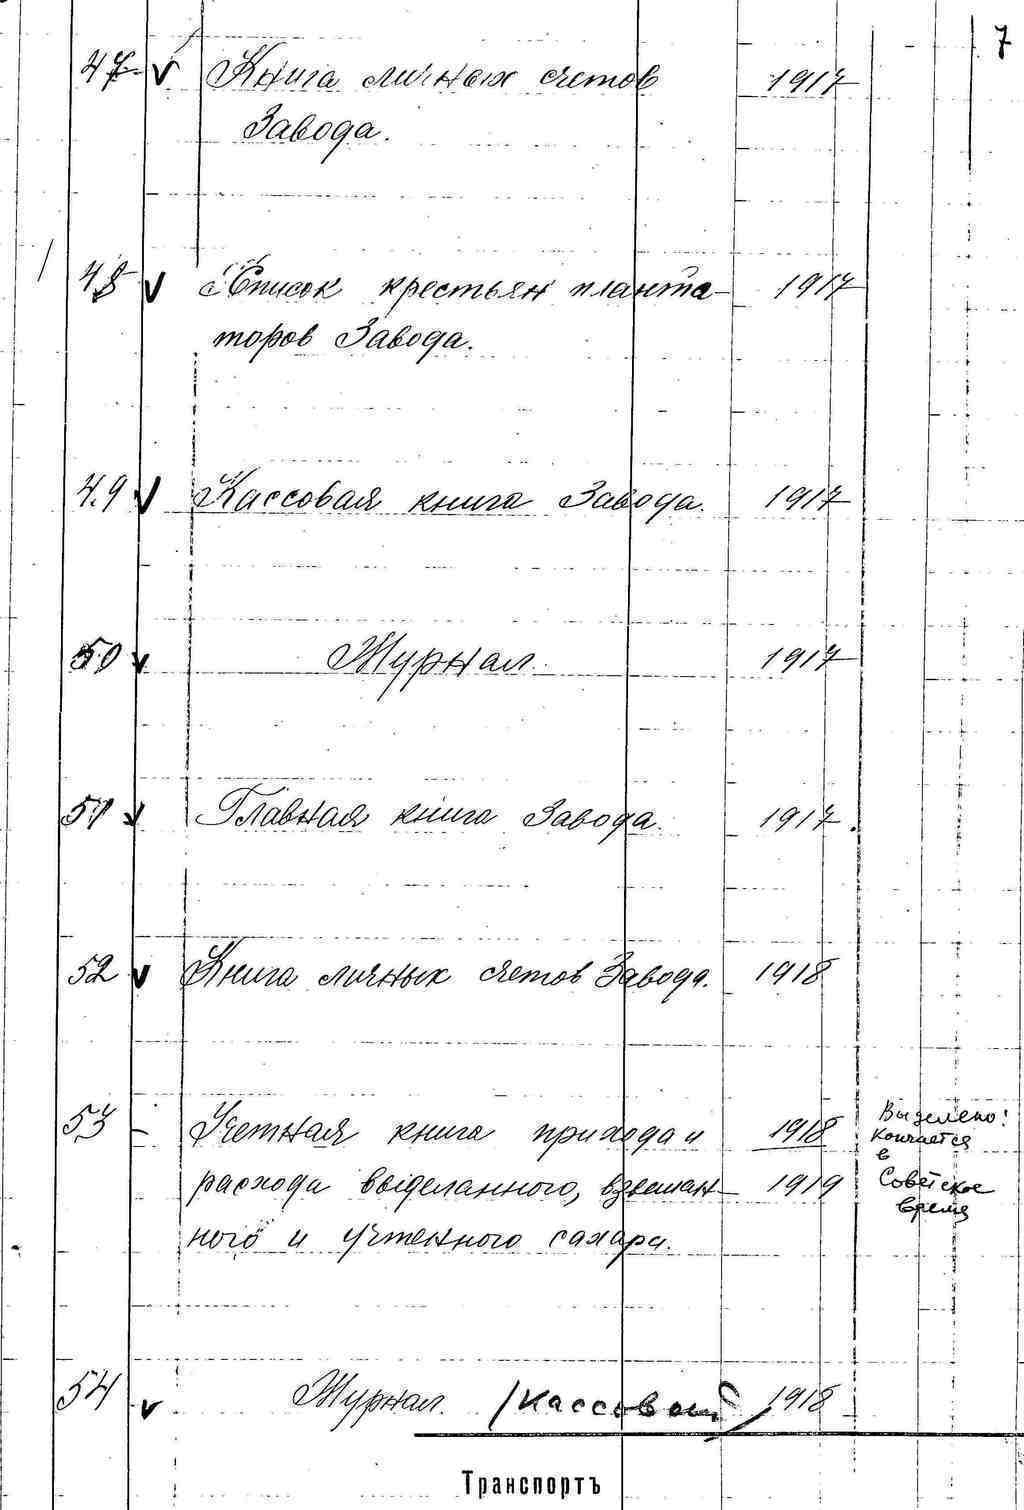 7
47 v Книга личных счетов 1917
Завода.
48 v Список крестьян планта- 1917
торов Завода.
49 v Кассовая книга Завода. 1917
50 v Журнал. 1917
51 v Главная книга Завода. 1917.
52 v Книга личных счетов Завода. 1918
53 - Учетная книга прихода и 1918 Выделено!
Кончается
в
расхода выделанного, взвешан- 1919 Советское
время
ного и учтенного сахара.
54 v Журнал. /Кассовый/ 1918
Транспортъ